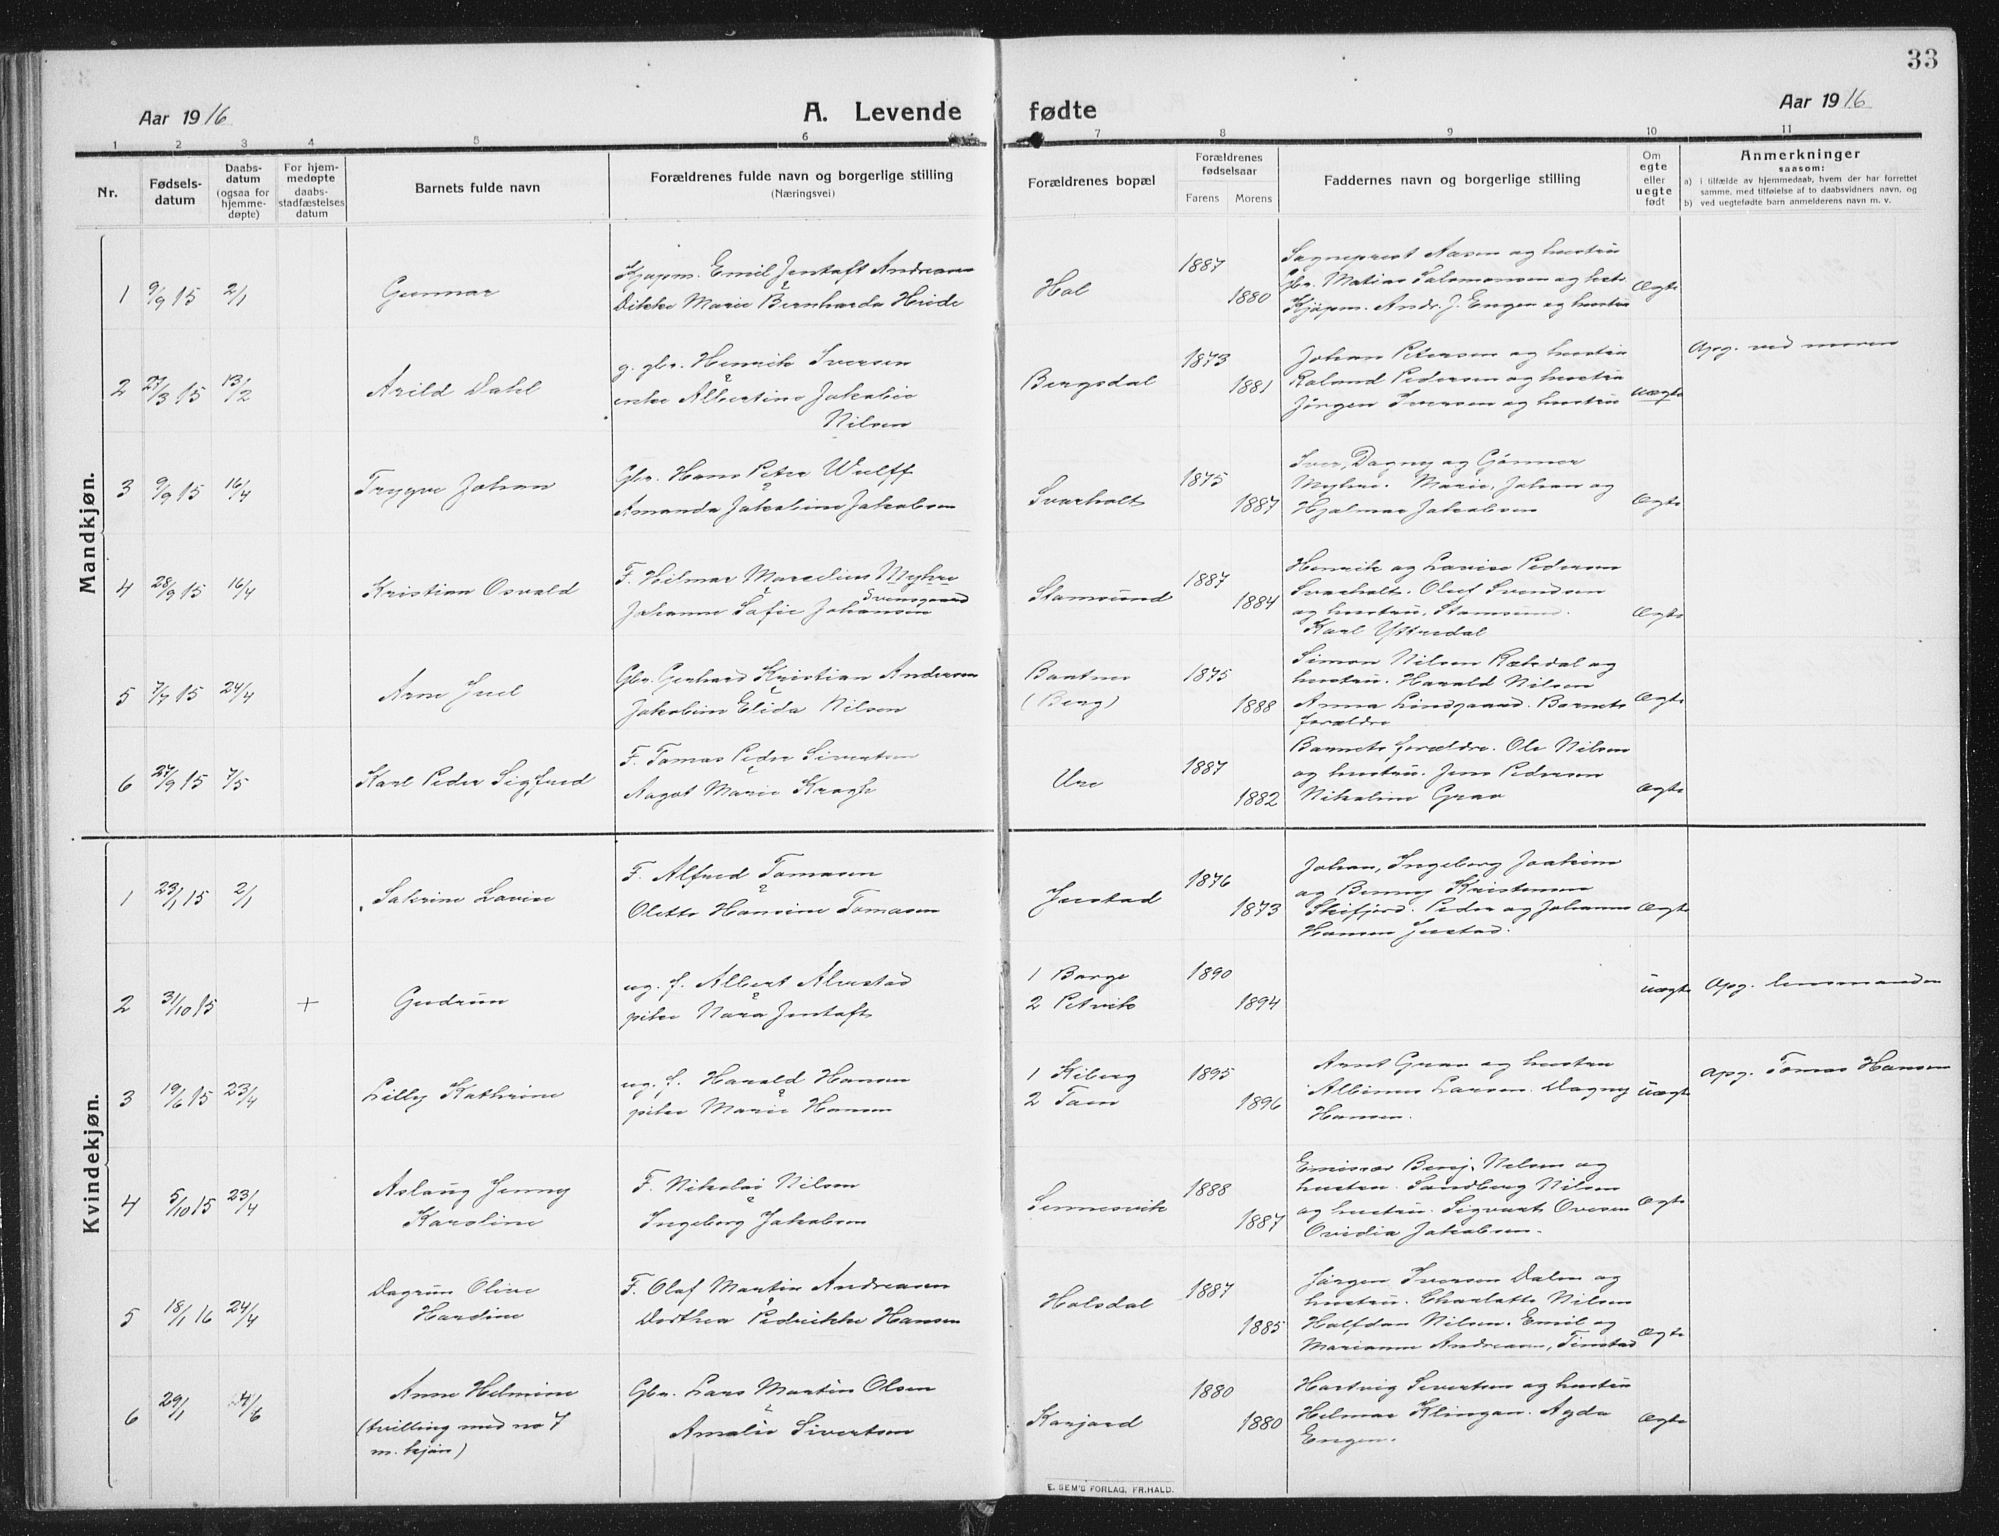 33
Aar 1916
A. Levende fødte
Aar 1916
1 2 3 4 5 6 7 8 9 10 11
Nr.
Fødsels-
datum
Daabs-
datum
(ogsaa for
hjemme-
døpte)
For hjem-
medøpte
daabs-
stadfæstelses
datum
Barnets fulde navn
Forældrenes fulde navn og borgerlige stilling
(Næringsvei)
Forældrenes bopæl
Forældrenes
fødselsaar
Farens Morens
Faddernes navn og borgerlige stilling
Om
egte
eller
uegte
født
Anmerkninger
saasom:
a) i tilfælde av hjemmedaab, hvem der har forrettet
samme, med tilføielse af to daabsvidners navn, og
b) ved uegtefødte barn anmelderens navn m. v.
Mandkjøn.
1 9/9 15 2/1 Gunnar
Kjøpm. Emil Jentoft Andreasen
Dikke Marie Bernharda Heide
Hol 1887 1880
Sogneprest Aasen og hustru
Gbr. Matias Salomonsen og hust.
Kjøpm. Andr. J. Engen og hustru
Ægte
2 27/3 15 13/2 Arild Dahl
g. gbr. Henrik Iversen
enke Albertine Jakobie
Nilsen
Bergsdal 1873 1881
Johan Petersen og hustru
Roland Pedersen og hustru
Jörgen Iversen og hustru
uægte
Opg. ved moren
3 9/9 15 16/4 Trygve Johan
Gbr. Hans Peter Wulff
Amanda Jakobine Jakobsen
Svarholt 1875 1887
Iver, Dagny og Gönner
Myhre. Marie, Johan og
Hjalmar Jakobsen
Ægte
4 28/9 15 16/4 Kristian Osvald
F. Hilmar Marselius Myhre
Svensgaard
Johanne Sofie Johansen
Stamsund 1887 1884
Henrik og Lovise Pedersen
Svarholt. Oluf Svendsen
og hustru, Stamsund.
Karl Yttredal
Ægte
5 7/7 15 24/4 Arne Juel
Gbr. Gerhard Kristian Andersen
Jakobine Elida Nilsen
(Berg) 1875 1888
Simon Nilsen Rølsdal og
hustru. Harald Nilsen
Anna Lindgaard. Barnets
forældre
Ægte
6 27/9 15 7/5 Karl Peder Sigfred
F. Tomas Peder Sivertsen
Aagot Marie Kragh
Ure 1887 1882
Barnets forældre. Ole Nilsen
og hustru. Jens Pedersen
Nikoline Grav
Ægte
Kvindekjøn.
1 23/1 15 2/1 Sakrine Lovise
F. Alfred Tomasen
Olette Hansine Tomasen
Justad 1876 1873
Johan, Ingeborg Joakim
og Benny Kristensen
Skifjord. Peder og Johanna
Hansen Justad.
Ægte
2 31/10 15 + Gudrun
ug. f. Albert Alvestad
pike Nora Jentoft
1 Borge
2 Petvik
1890 1894
uægte
Opg. lensmanden
3 19/6 15 23/4 Lilly Kathrine
ug. f. Harald Hansen
pike Marie Hansen
1 Kiberg
2 Tom
1895 1896
Arnt Grav og hustru
Albinus Larsen. Dagny
Hansen.
uægte
Opg. Tomas Hansen
4 5/10 15 23/4 Aslaug Jenny
Karoline
F. Nikolai Nilsen
Ingeborg Jakobsen
Sennesvik 1888 1887
Emissær Benj. Nilsen og
hustru. Sandberg Nilsen
og hustru. Sigvart Ovesen
Ovidia Jakobsen.
Ægte
5 18/1 16 24/4 Dagrun Olive
Hardine
F. Olaf Martin Andreasen
Dorthea Pedrikke Hansen
Holsdal 1887 1885
Jørgen Iversen Dalen og
hustru. Charlotte Nilsen
Halfdan Nilsen. Emil og
Marianne Andreasen, Finstad
Ægte
6 29/1 4/6 Anne Helmine
(tvilling med no 7
m. kjøn)
Gbr. Lars Martin Olsen
Amalie Sivertsen
Kanjord 1880 1880
Hartvig Sivertsen og hustru
Helmar Klingan. Agda
Engen.
Ægte
E. SEM'S FORLAG, FR.HALD.